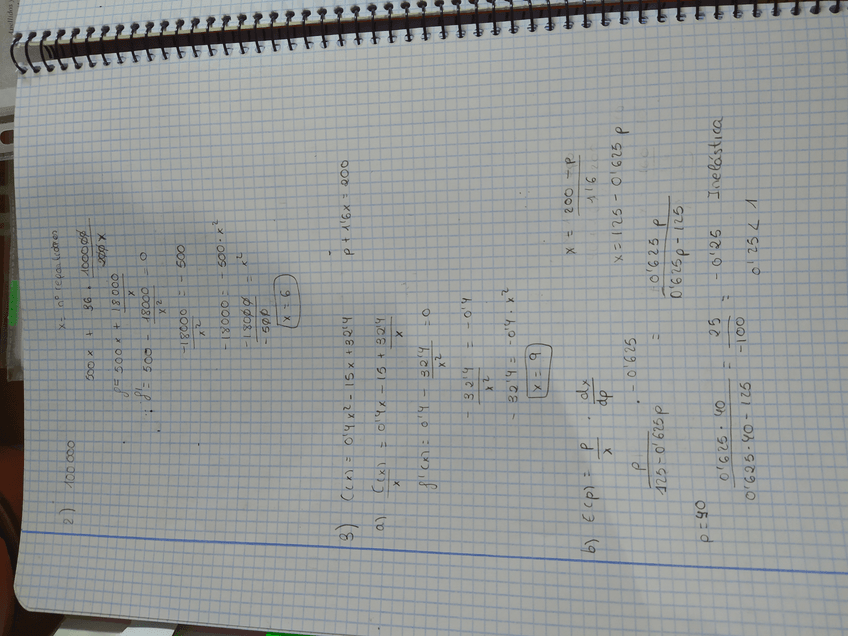 2) 100.000 x = nº reparaciones
500x + 36 · 100000/200x
f = 500x + 18000/x
f' = 500 - 18000/x² = 0
-18000/x² = -500
-18000 = -500·x²
-18000/-500 = x²
x = 6
3) C(x) = 0'4x² - 15x + 32'4 p + 1'6x = 200
a) C(x)/x = 0'4x - 15 + 32'4/x
f'(x) = 0'4 - 32'4/x² = 0
-32'4/x² = -0'4
-32'4 = -0'4·x²
x = 9
b) E(p) = p/x · dx/dp x = 200 - p/1'6
p/125-0'625p · -0'625 = 0'625p/0'625p - 125 x = 125 - 0'625p
p = 40 0'625·40/0'625·40-125 = 25/-100 = -0'25 Inelástica
0'25 < 1